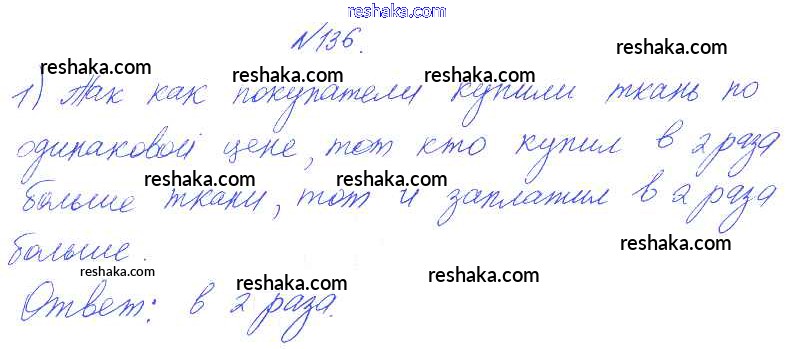 reshaka.com
№136.
reshaka.com reshaka.com reshaka.com
1) Так как покупатели купили ткань по
reshaka.com reshaka.com reshaka.com
одинаковой цене, тот кто купил в 2 раза
reshaka.com reshaka.com
больше ткани, тот и заплатил в 2 раза
больше.
reshaka.com reshaka.com reshaka.com reshaka.com
Ответ: в 2 раза.
reshaka.com reshaka.com reshaka.com